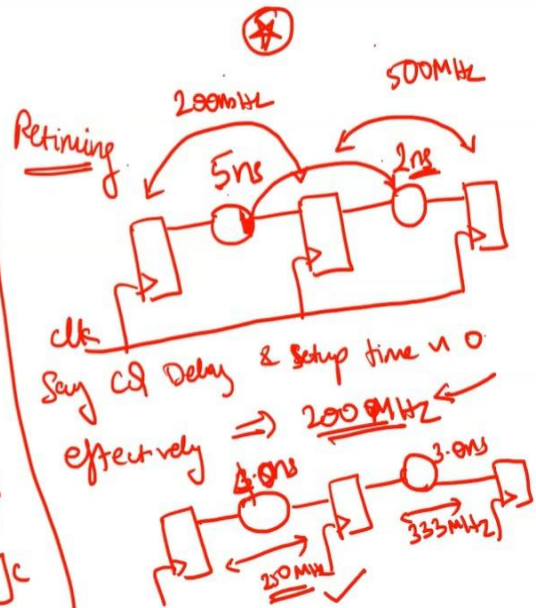 500MHz
200MHz
Retiming
5ns
2ns
clk
Say CQ Delay & Setup time ~ 0
effectively ⇒ 200MHz
4.0ns
3.0ns
333MHz
250MHz
C